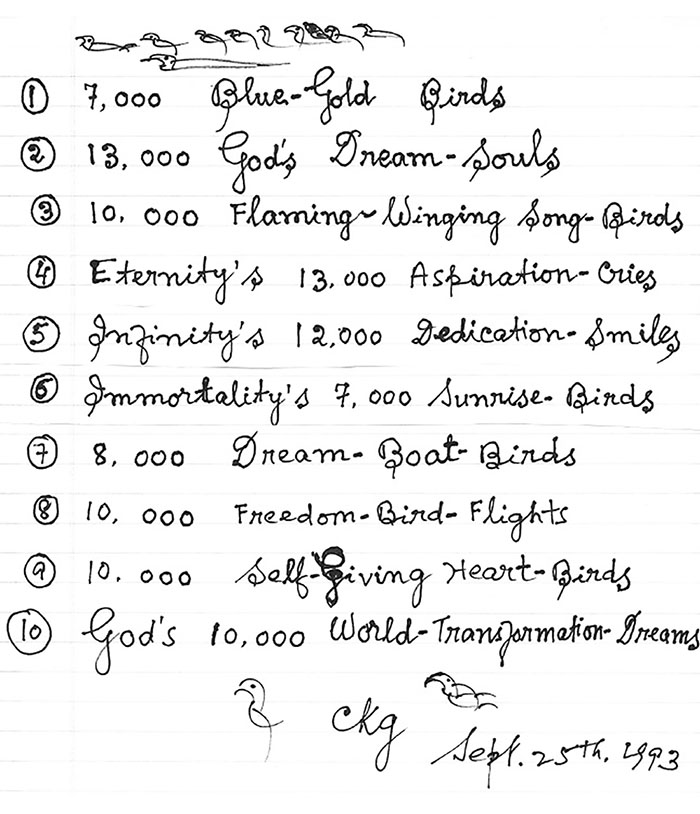 ① 7,000 Blue-Gold Birds
② 13,000 God's Dream-Souls
③ 10,000 Flaming-Winging Song-Birds
④ Eternity's 13,000 Aspiration-Cries
⑤ Infinity's 12,000 Dedication-Smiles
⑥ Immortality's 7,000 Sunrise-Birds
⑦ 8,000 Dream-Boat-Birds
⑧ 10,000 Freedom-Bird-Flights
⑨ 10,000 Self-Giving Heart-Birds
⑩ God's 10,000 World-Transformation-Dreams
CKG
Sept. 25th, 1993